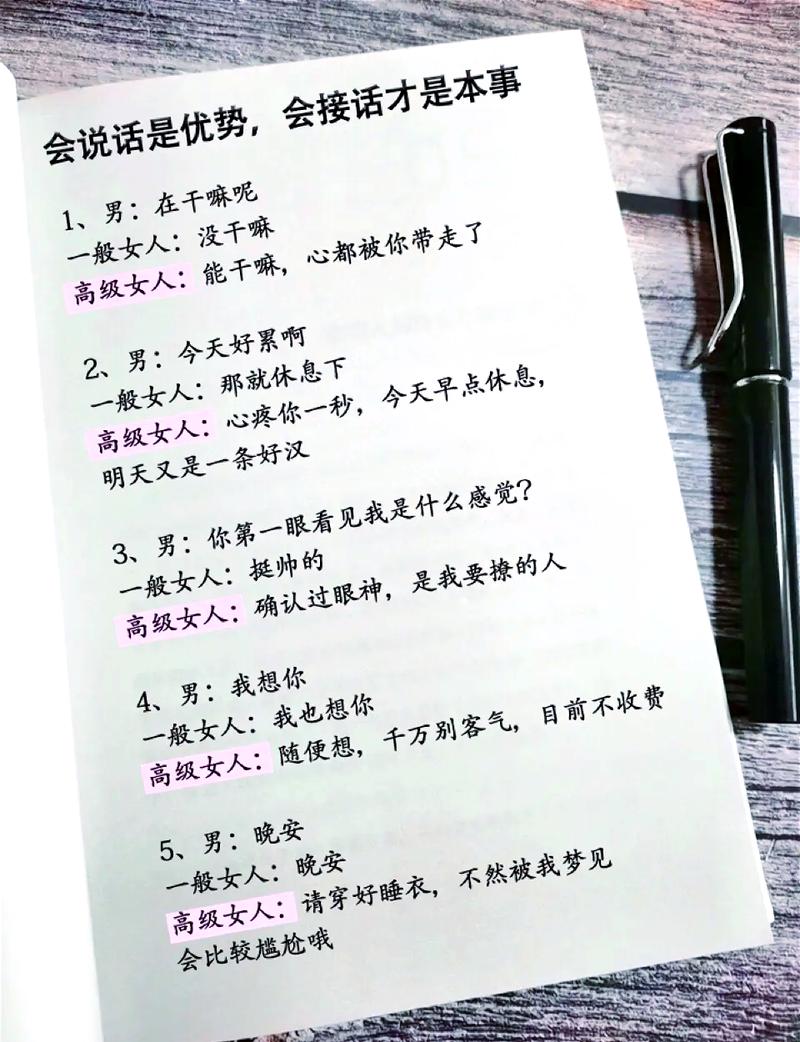 会说话是优势，会接话才是本事
1、男：在干嘛呢
一般女人：没干嘛
高级女人：能干嘛，心都被你带走了
2、男：今天好累啊
一般女人：那就休息下
高级女人：心疼你一秒，今天早点休息，
明天又是一条好汉
3、男：你第一眼看见我是什么感觉？
一般女人：挺帅的
高级女人：确认过眼神，是我要撩的人
4、男：我想你
一般女人：我也想你
高级女人：随便想，千万别客气，目前不收费
5、男：晚安
一般女人：晚安
高级女人：请穿好睡衣，不然被我梦见
会比较尴尬哦